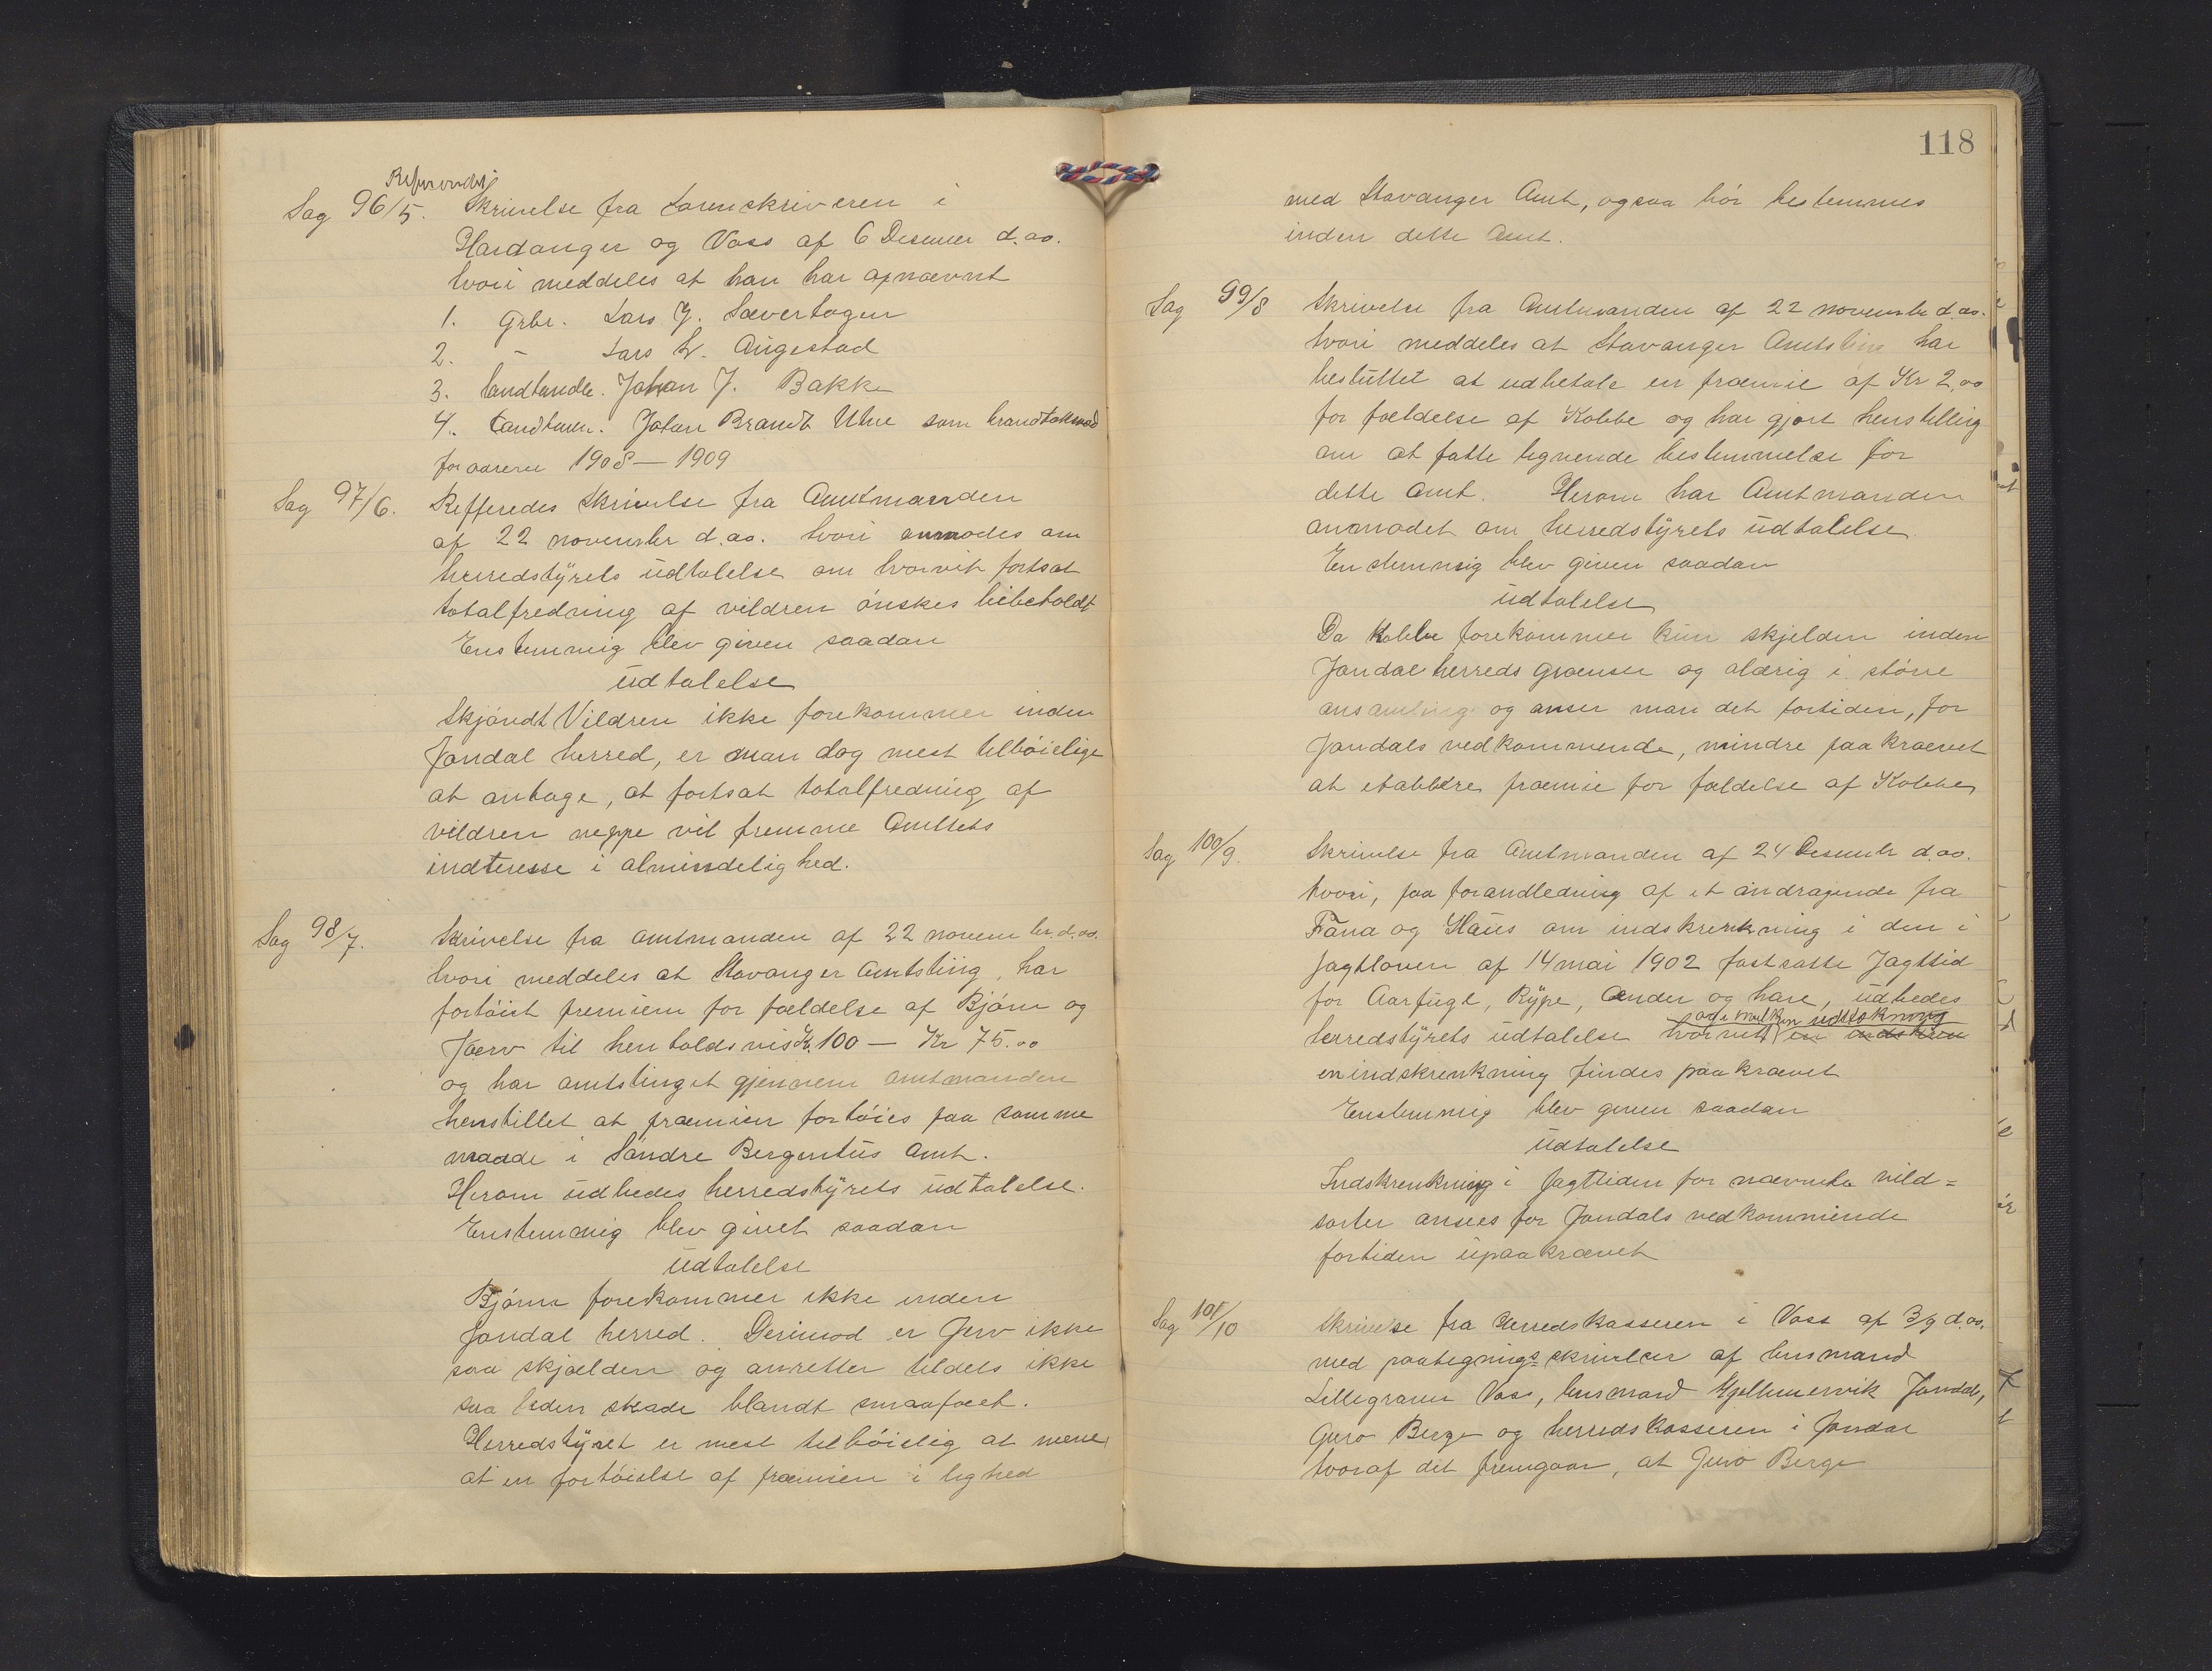 Sag 96/5. Skrivelse fra Sorenskriveren i
Hardanger og Voss af 6 Desember d.ao.
hvori meddeles at han har opnævnt
1. Grbr. Lars J. Sævertagen
2. – Lars L. Augestad
3. Landhandle. Johan J. Bakke
4. Landhand. Johan Brandt Uhe som brandtaksmænd
for aarene 1908 – 1909
Sag 97/6. Refferedes Skrivelse fra Amtmanden
af 22 november d.ao. hvori anmodes om
herredstyrets udtalelse om hvorvit fortsat
totalfredning af vildren ønskes bibeholdt
Enstemmig blev given saadan
udtalelse
Skjøndt Vildren ikke forekommer inden
Jondal herred, er man dog mest tilbøielige
at antage, at fortsat totalfredning af
vildren neppe vil fremme Amtets
indteresse i almindelighed.
Sag 98/7. Skrivelse fra amtmanden af 22 novembr. d.ao.
hvori meddeles at Stavanger Amtsting, har
forhøiet premien for fældelse af Bjørn og
Jærv til henholdsvis Kr. 100 – Kr 75.00
og har amtstinget gjennem amtmanden
henstillet at præmien forhøies paa samme
maade i Søndre Bergenhus Amt.
Herom udbedes herredstyrets udtalelse.
Enstemmig blev givet saadan
udtalelse
Bjørne forekommer ikke inden
Jondal herred. Derimod er Jerv ikke
saa skjælden og anretter tildels ikke
saa liden skade blandt smaafæet.
Herredstyret er mest tilbøielig at mene,
at en forhøielse af præmien i lighed
118
med Stavanger Amt, ogsaa bør bestemmes
inden dette Amt.
Sag 99/8 Skrivelse fra Amtmanden af 22 november d.ao.
hvori meddeles at Stavanger Amtsting har
besluttet at udbetale en præmie af Kr 2,00
for fældelse af Kobbe og har gjort henstilling
om at fatte lignende bestemmelse for
dette Amt. Herom har Amtmanden
anmodet om herredstyrets udtalelse.
Enstemmig blev given saadan
udtalelse
Da Kobbe forekommer kun skjelden inden
Jondal herreds grænser og aldrig i større
ansamling og anser man det fortiden, for
Jondals vedkommende, mindre paakrævet
at etablere præmie for fældelse af Kobbe
Sag 100/9. Skrivelse fra Amtmanden af 24 Desembr d.ao.
hvori, paa forandledning af et andragende fra
Fana og Haus om indskrenkning i den i
Jagtloven af 14 mai 1902 fastsatte Jagttid
for Aarfugl, Rype, Ænder og hare, udbedes
og i hvilken udstrekning
herredstyrets udtalelse hvorvidt en indskren
en indskrenkning findes paakrævet
Enstemmig blev given saadan
udtalelse
Indskrenkning i Jagttiden for nævnte vild=
sorter ansees for Jondals vedkommende
fortiden upaakrævet
Sag 101/10 Skrivelse fra Herredskasseren i Voss af 3/9 d.ao.
med paategnings=skrivelser af lensmand
Lillegraven Voss, lensmand Kjellmervik Jondal,
Guro Berge og herredskasseren i Jondal
hvoraf det fremgaar, at Guro Berge